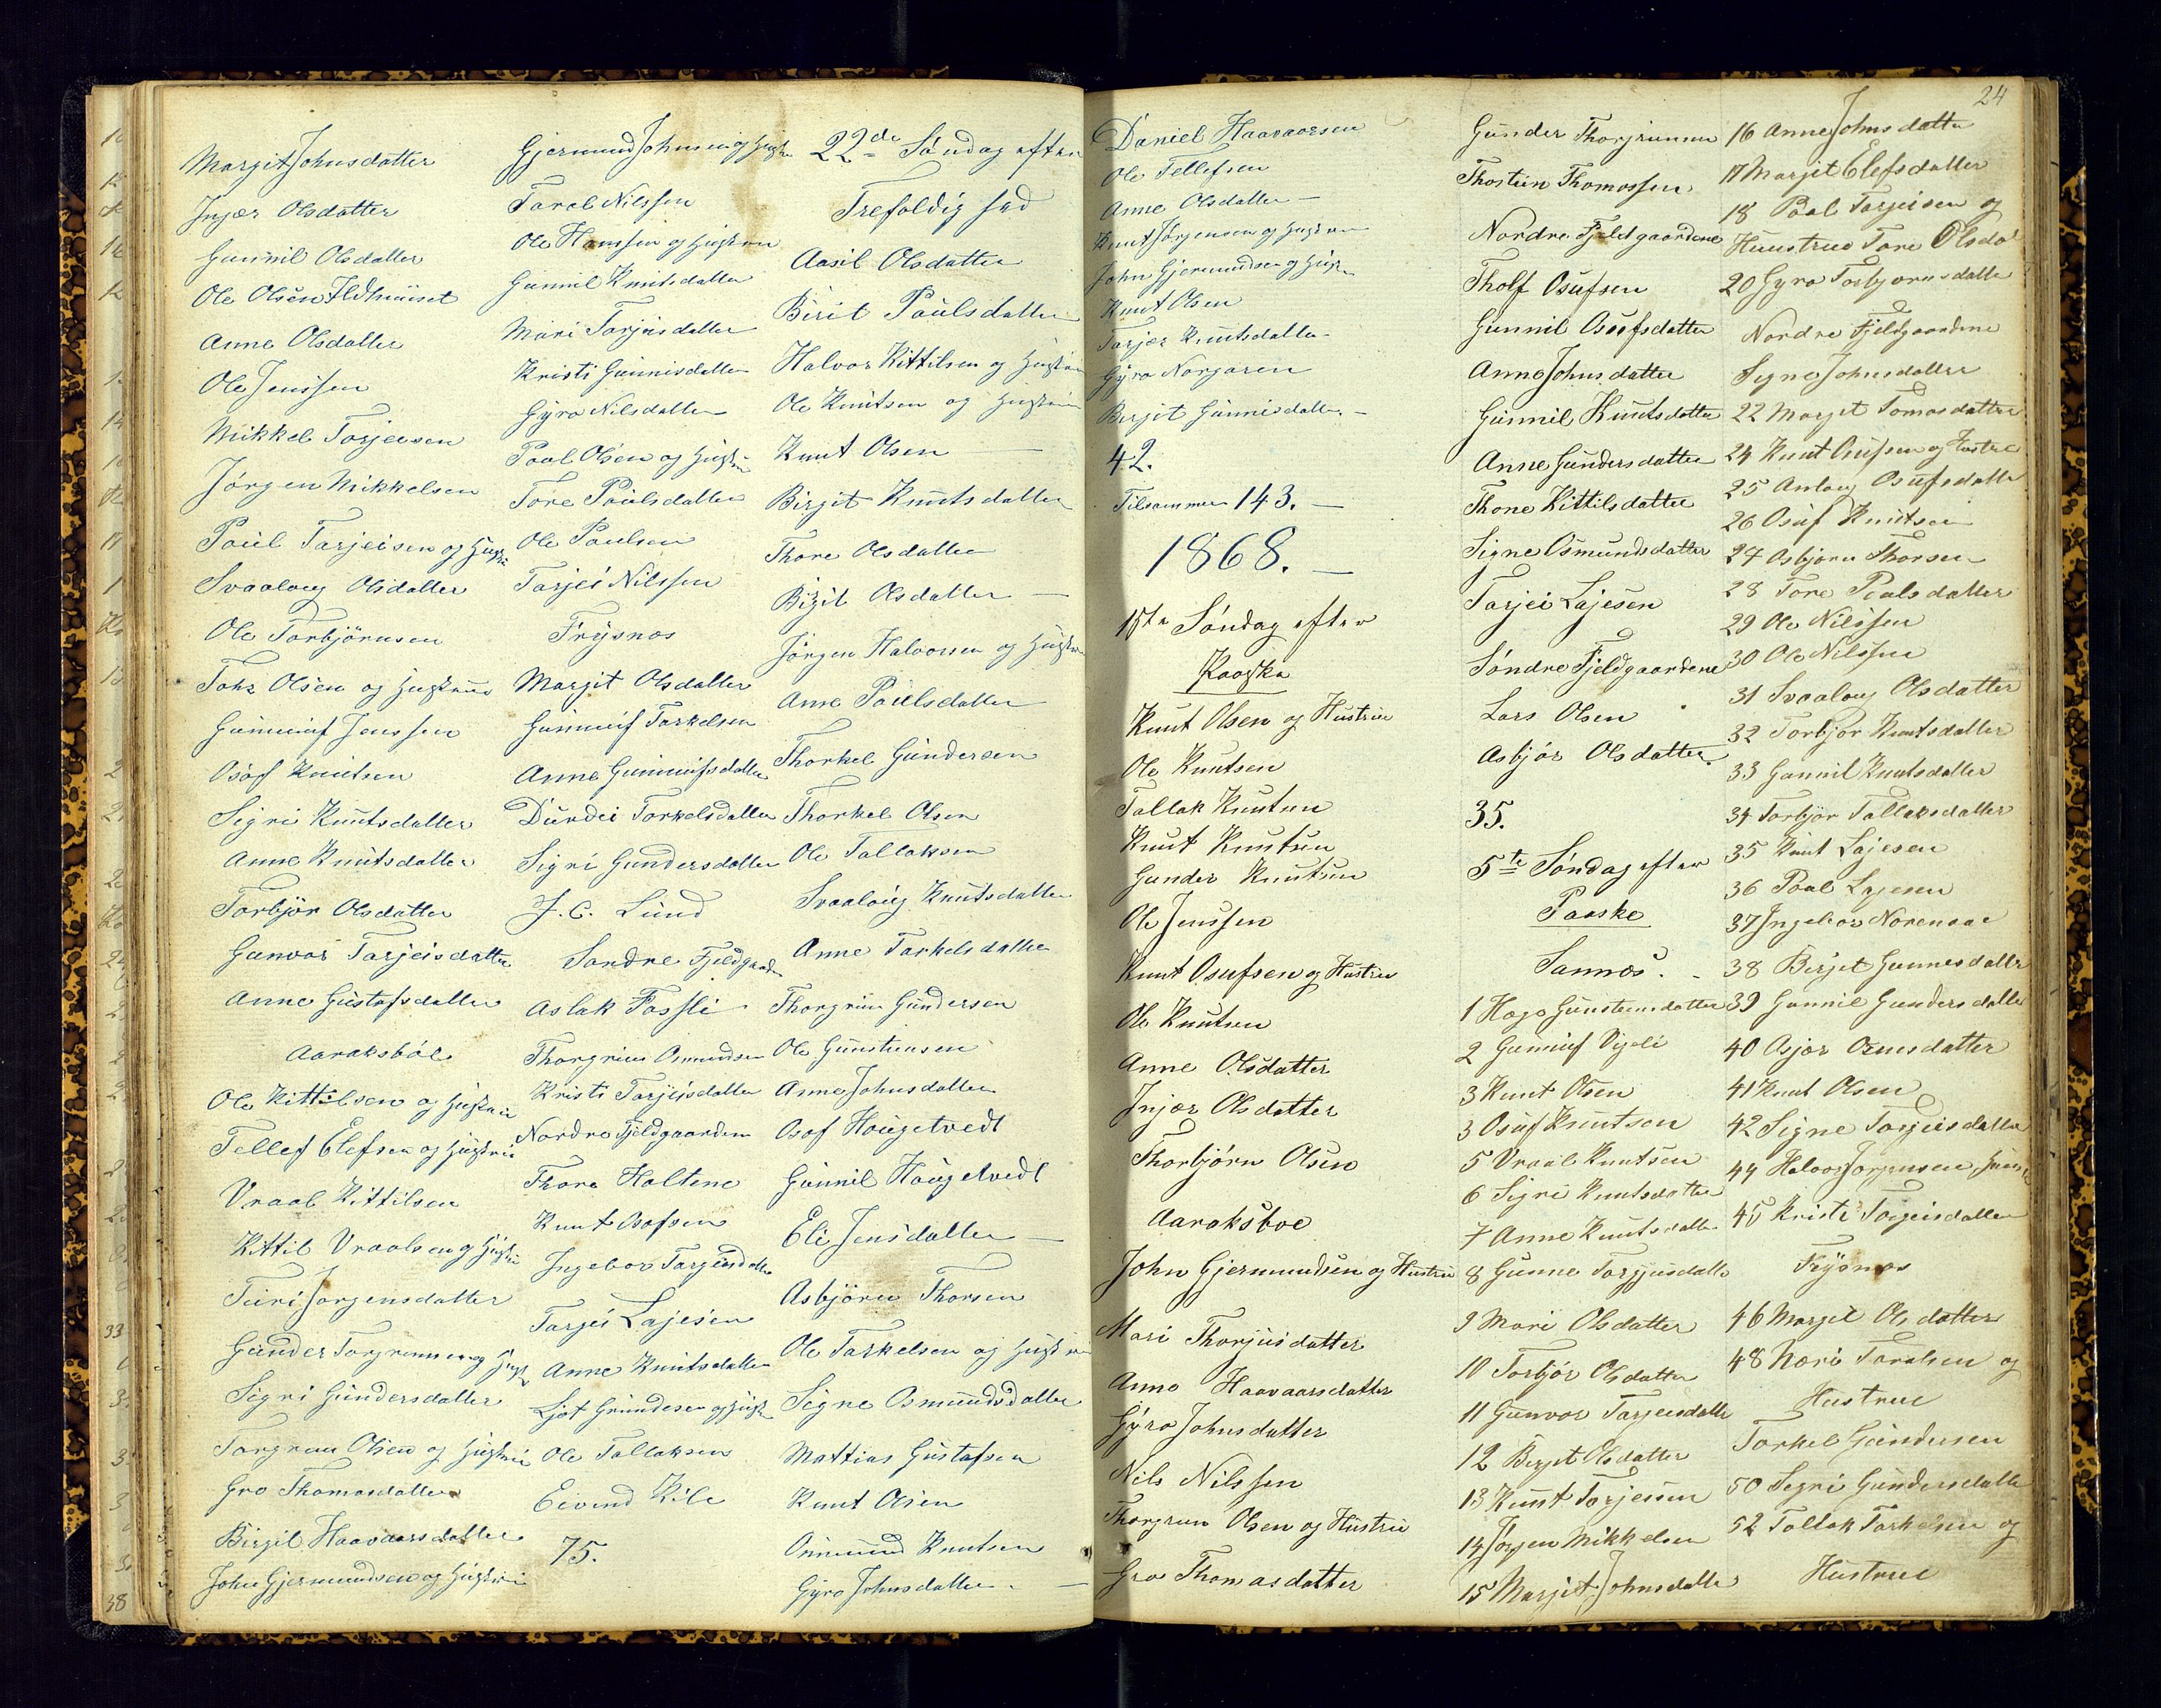 Margit Johnsdatter
Injær Olsdatter
Gunnil Olsdatter
Ole Olsen
Anne Olsdatter
Ole Jenssen
Mikkel Tarjeisen
Jörgen Mikkelsen
Paul Tarjeisen og Hustru
Svaaloug Olsdatter
Ole Torbjörnsen
Olsen og Hustrue
Gunnuif Jenssen
Osof Knutsen
Sigri Knutsdatter
Anne Knutsdatter
Torbjör Olsdatter
Gunvor Tarjeisdatter
Anne Gustafsdatter
Aaraksböe
Ole Kittilsen og Hustrue
Tellef Olefsen og Hustrue
Vraal Kittilsen
Kittil Vraalsen og Hustrue
Turi Jorgensdatter
Gunder Torgrimsen og Hust
Sigri Gundersdatter
Torgrim Olsen og Hustrue
Gro Thomasdatter
Birgit Haavaarsdatter
John Gjermundsen og Hustrue
Gjermund Johnsen og Hustr
Taral Nilssen
Ole Hanssen og Hustrue
Gunnil Knutsdatter
Mari Tarjeisdatter
Kristi Gunnisdatter
Gyro Nilsdatter
Paal Olsen og Hustru
Tore Paulsdatter
Ole Paulsen
Tarjei Nilssen
Frysnæs
Margit Olsdatter
Gunnuif Tarkelsen
Anne Gunnuifsdatter
Durdei Torkelsdatter
Sigri Gundersdatter
J. C. Lund
Søndre Fjeldgaarden
Aslak Fossli
Thorgrim Osmundsen
Kristi Tarjeisdatter
Nordre Fjeldgaarden
Thore Holtene
Knut Osofsen
Ingebor Tarjeisdatter
Tarjei Lajesen
Anne Knutsdatter
Ljot Grundesen og Hustr
Ole Tallaksen
Eivind Kile
75.
22de Söndag efter
Trefoldighed
Aasil Olsdatter
Birit Paulsdatter
Halvor Kittilsen og Hustrue
Ole Knutsen og Hustrue
Knut Olsen —
Birgit Knutsdatter
Thore Olsdatter
Birgit Olsdatter —
Jörgen Halvorsen og Hustru
Anne Paulsdatter
Thorkel Gundersen
Thorkel Olsen
Ole Tallaksen
Svaaloug Knutsdatter
Anne Tarkelsdatter
Thorgrim Gundersen
Ole Gunstensen
Anne Johnsdatter
Osof Hougetvedt
Gunnil Hougetvedt
Eli Jensdatter —
Asbjörn Thorsen
Ole Tarkelsen og Hustrue
Signe Osmundsdatter
Mattias Gustafsen
Knut Olsen
Onnund Knutsen
Gyro Johnsdatter. —
24
Daniel Haavaarsen
Ole Tellefsen
Anne Olsdatter —
Knut Jörgensen og Hustrue
John Gjermundsen og Hustr
Knut Olsen
Tarjær Knutsdatter
Gyro Norgaren
Bergit Gunnisdatter. —
42.
Tilsammen 143. —
1868. —
1ste Söndag efter
Paaske
Knut Olsen og Hustrue
Ole Knutsen
Tallak Knutsen
Knut Knutsen
Gunder Knutsen
Ole Jenssen
Knut Osufsen og Hustrue
Ole Knutsen
Anne Olsdatter
Injær Olsdatter
Thorbjörn Olsen
Aaraksboe
John Gjermundsen og Hustrue
Mari Thorjusdatter
Anne Haavaarsdatter
Gyro Johnsdatter
Nils Nilssen
Thorgrim Olsen og Hustrue
Gro Thomasdatter
Gunder Thorgrimsen
Thostein Thomassen
Nordre Fjeldgaardene
Tholf Osufsen
Gunnil Osufsdatter
Anne Johnsdatter
Gunnil Knutsdatter
Anne Gundersdatter
Thone Kittilsdatter
Signe Osmundsdatter
Tarjei Lajesen
Söndre Fjeldgaardene
Lars Olsen
Asbjör Olsdatter
35.
5te Söndag efter
Paaske
Sannes. -
1 Hoge Gunsteinsdatter
2 Gunnuif Vigeli
3 Knut Olsen
3 Osuf Knutsen
5 Vraal Knutsen
6 Sigri Knutsdatter
7 Anne Knutsdatter
8 Gunne Torjusdatter
9 Mari Olsdatter
10 Torbjör Olsdatter
11 Gunvor Tarjeisdatter
12 Bergit Olsdatter
13 Knut Torjeisen
14 Jörgen Mikkelsen
15 Margit Johnsdatter
16 Anne Johnsdatter
17 Margit Olefsdatter
18 Paal Tarjeisen og
Huustrue Tore Olsdat
20 Gyro Torbjornsdatter
Nordre Fjeldgaardene
Signe Johnsdatter
22 Margit Tomasdatter
24 Knut Osufsen og Hustrue
25 Anlaug Osufsdatter
26 Osuf Knutsen
27 Asbjorn Thorsen
28 Tore Paulsdatter
29 Ole Nilssen
30 Ole Nilssen
31 Svaaloug Olsdatter
32 Torbjor Knutsdatter
33 Gunnil Knutsdatter
34 Torbjor Tallaksdatter
35 Knut Lajesen
36 Paal Lajesen
37 Ingebor
38 Birgit Gunnesdatter
39 Gunnil Gundersdatter
40 Osjær
41 Knut Olsen
42 Signe Torjeisdatter
44 Halvor Jorgensen,
45 Kristi Torjeisdatter
Frysnæs
46 Margit Olsdatter
48 Noeri Taralsen og
Hustrue
Torkel Gundersen
50 Segri Gundersdatter
52 Tallak Tarkelsen og
Hustrue